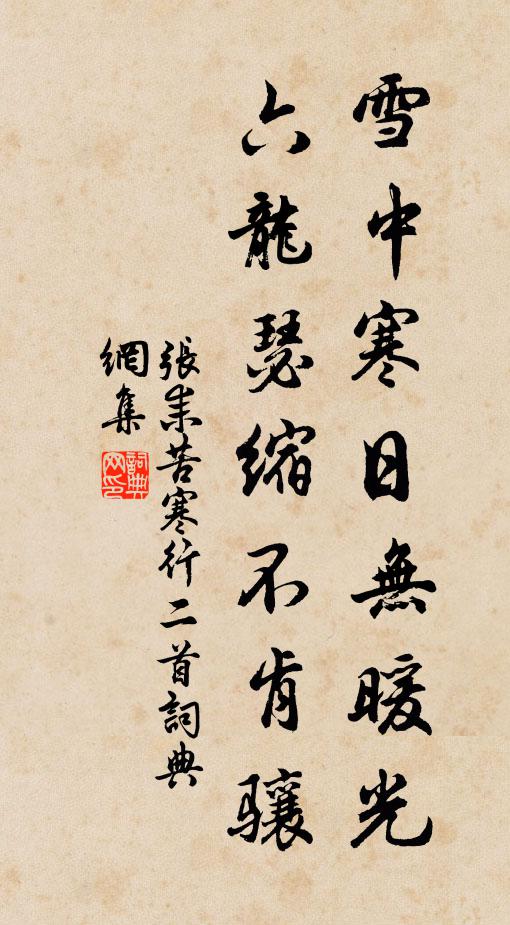 雪中寒日無暖光
六龍瑟縮不肯驤
張耒苦寒行二首詞典
網集
詞典網印